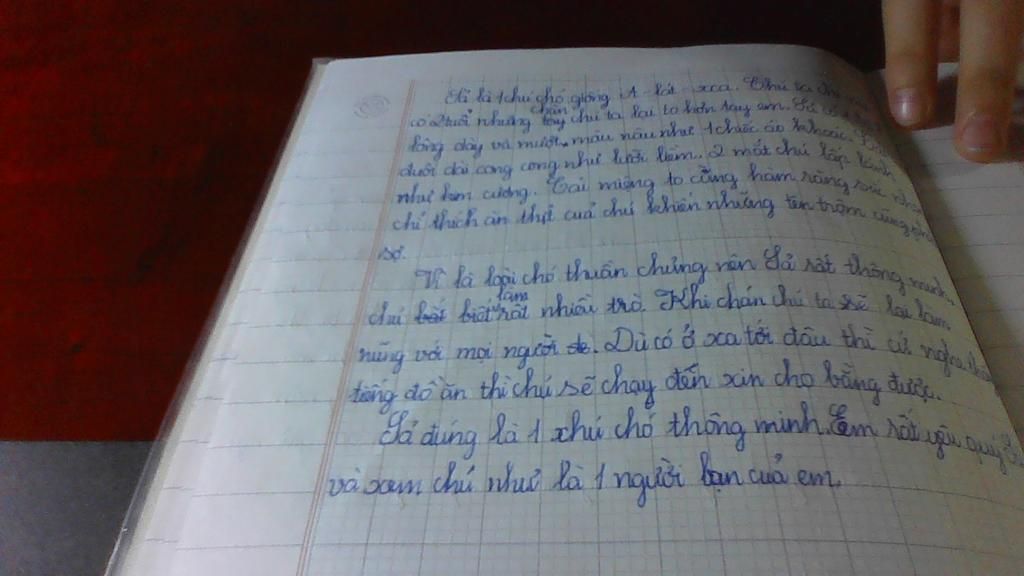 Sả là 1 chú chó giống A - lát - xca. Chú ta chỉ
có 2 tuổi nhưng chân chú ta lại to hơn tay em. Sả có
lông dày và mượt, màu nâu như 1 chiếc áo khoác.
đuôi dài cong cong như lưỡi liềm. 2 mắt chú lấp lánh
như kim cương. Cái miệng to cùng hàm răng sắc nhọn
chỉ thích ăn thịt cuả chú khiến những tên trộm cũng phải
sợ.
Vì là loài chó thuần chủng nên Sả rất thông minh,
chú biết làm rất nhiều trò. Khi chán chú ta sẽ lại làm
nũng với mọi người. Dù có ở xa tới đâu thì cứ nghe thấy
tiếng đồ ăn thì chú sẽ chạy đến xin cho bằng được.
Sả đúng là 1 chú chó thông minh. Em rất yêu quý Sả
và xem chú như là 1 người bạn cuả em.